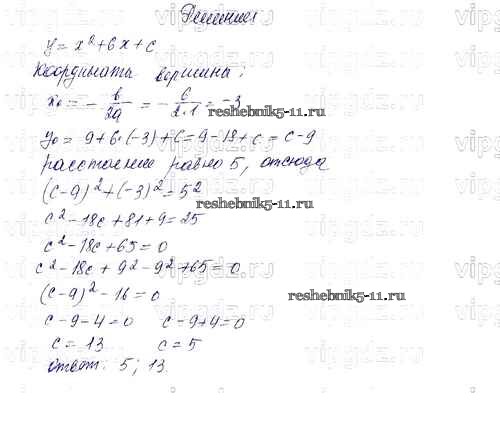 Решение
y = x² + 6x + c
Координата вершины:
x₀ = - b/2a = - 6/2·1 = -3
y₀ = 9 + 6·(-3) + c = 9 - 18 + c = c - 9
расстояние равно 5, отсюда
(c-9)² + (-3)² = 5²
c² - 18c + 81 + 9 = 25
c² - 18c + 65 = 0
c² - 18c + 9² - 9² + 65 = 0
(c-9)² - 16 = 0
c - 9 - 4 = 0 c - 9 + 4 = 0
c = 13 c = 5
Ответ: 5; 13.
reshebnik5-11.ru
reshebnik5-11.ru
reshebnik5-11.ru
vipgdz.ru